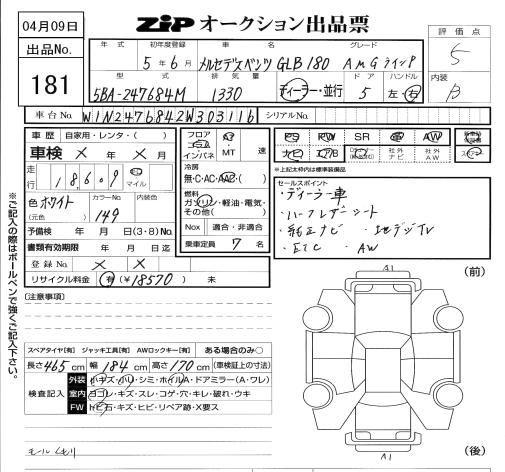 04月09日
ZIP オークション出品票
出品No.
181
評価点
5
内装
B
年式 初年度登録 車名 グレード
5年6月 メルセデスベンツ GLB180 AMGラインP
型式 排気量 ドア ハンドル
5BA-247684M 1330 ディーラー・並行 5 左・右
車台No. W1N2476842W303116 シリアルNo.
車歴 自家用・レンタ・( )
車検 × 年 × 月
走行 18609 マイル
色 ホワイト カラーNo. 149 内装色
(元色)
予備検 年 月 日(3・8)No.
書類有効期限 年 月 日迄
登録No. × ×
リサイクル料金 有(¥18570) 未
フロア コラム インパネ
MT 速
冷房
無・C・AC・AAC・( )
燃料
ガソリン・軽油・電気・その他( )
Nox 適合・非適合
乗車定員 7 名
SR AW
ナビ エアB 社外ナビ 社外AW
※上記太枠内は標準装備品
セールスポイント
・ディーラー車
・ハーフレザーシート
・純正ナビ ・地デジTV
・ETC ・AW
※ご記入の際はボールペンで強くご記入下さい。
[注意事項]
スペアタイヤ[有] ジャッキ工具[有] AWロックキー[有] ある場合のみ○
長さ465cm 幅184cm 高さ170cm (車検証上の寸法)
検査記入
外装 小キズ・小U・シミ・ホイルA・ドアミラー(A・ワレ)
室内 ヨゴレ・キズ・スレ・コゲ・穴・キレ・破れ・ウキ
FW トビ石・キズ・ヒビ・リペア跡・X要ス
(前)
A1
A1
(後)